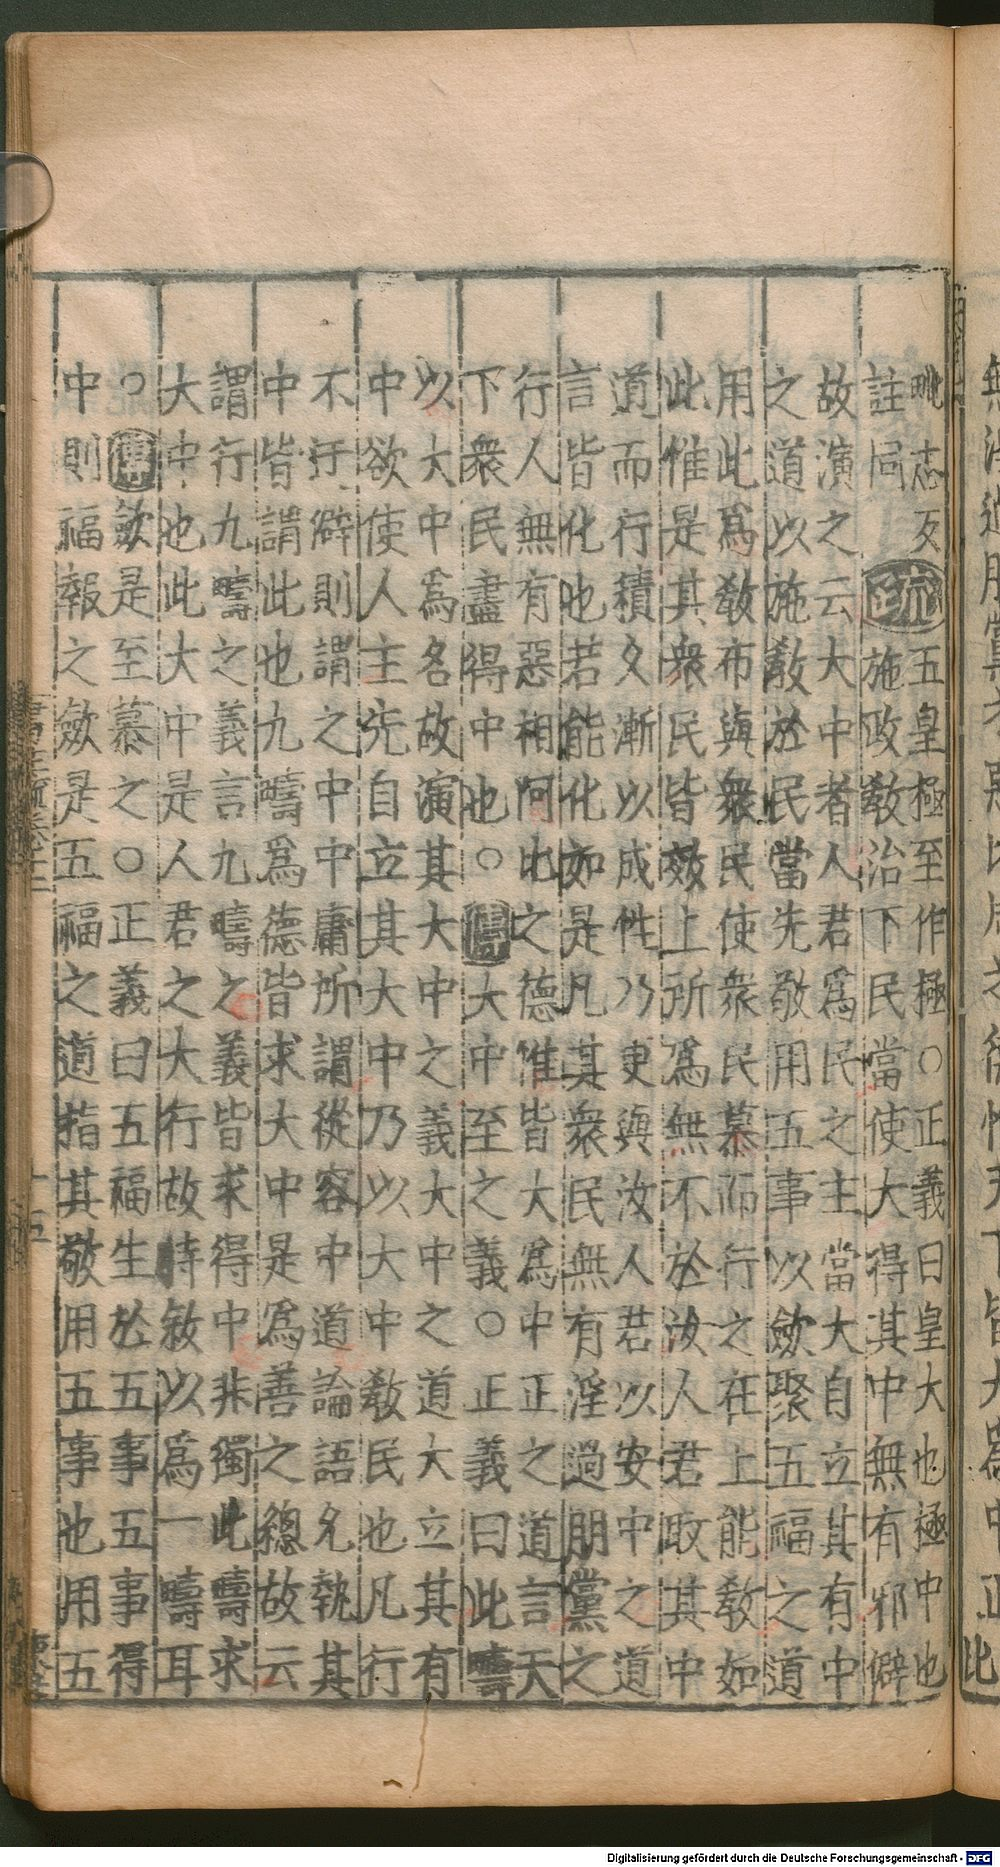 毗志反
註同
疏
五皇極至作極○正義曰皇大也極中也
施政敎治下民當使大得其中無有邪僻
故演之云大中者人君爲民之主當大自立其有中
之道以施敎於民當先敬用五事以斂聚五福之道
用此爲敎布與衆民使衆民慕而行之在上能敎如
此惟是其衆民皆效上所爲無不於汝人君取其中
道而行積久漸以成性乃更與汝人君以安中之道
言皆化也若能化如是凡其衆民無有淫過朋黨之
行人無有惡相阿比之德惟皆大爲中正之道言天
下衆民盡得中也○傳大中至之義○正義曰此疇
以大中爲名故演其大中之義大中之道大立其有
中欲使人主先自立其大中乃以大中敎民也凡行
不迂僻則謂之中中庸所謂從容中道論語允執其
中皆謂此也九疇爲德皆求大中是爲善之總故云
謂行九疇之義言九疇之義皆求得中非獨此疇求
大中也此大中是人君之大行故特敘以爲一疇耳
○傳斂是至慕之○正義曰五福生於五事五事得
中則福報之斂是五福之道指其敬用五事也用五
Digitalisierung gefördert durch die Deutsche Forschungsgemeinschaft - DFG